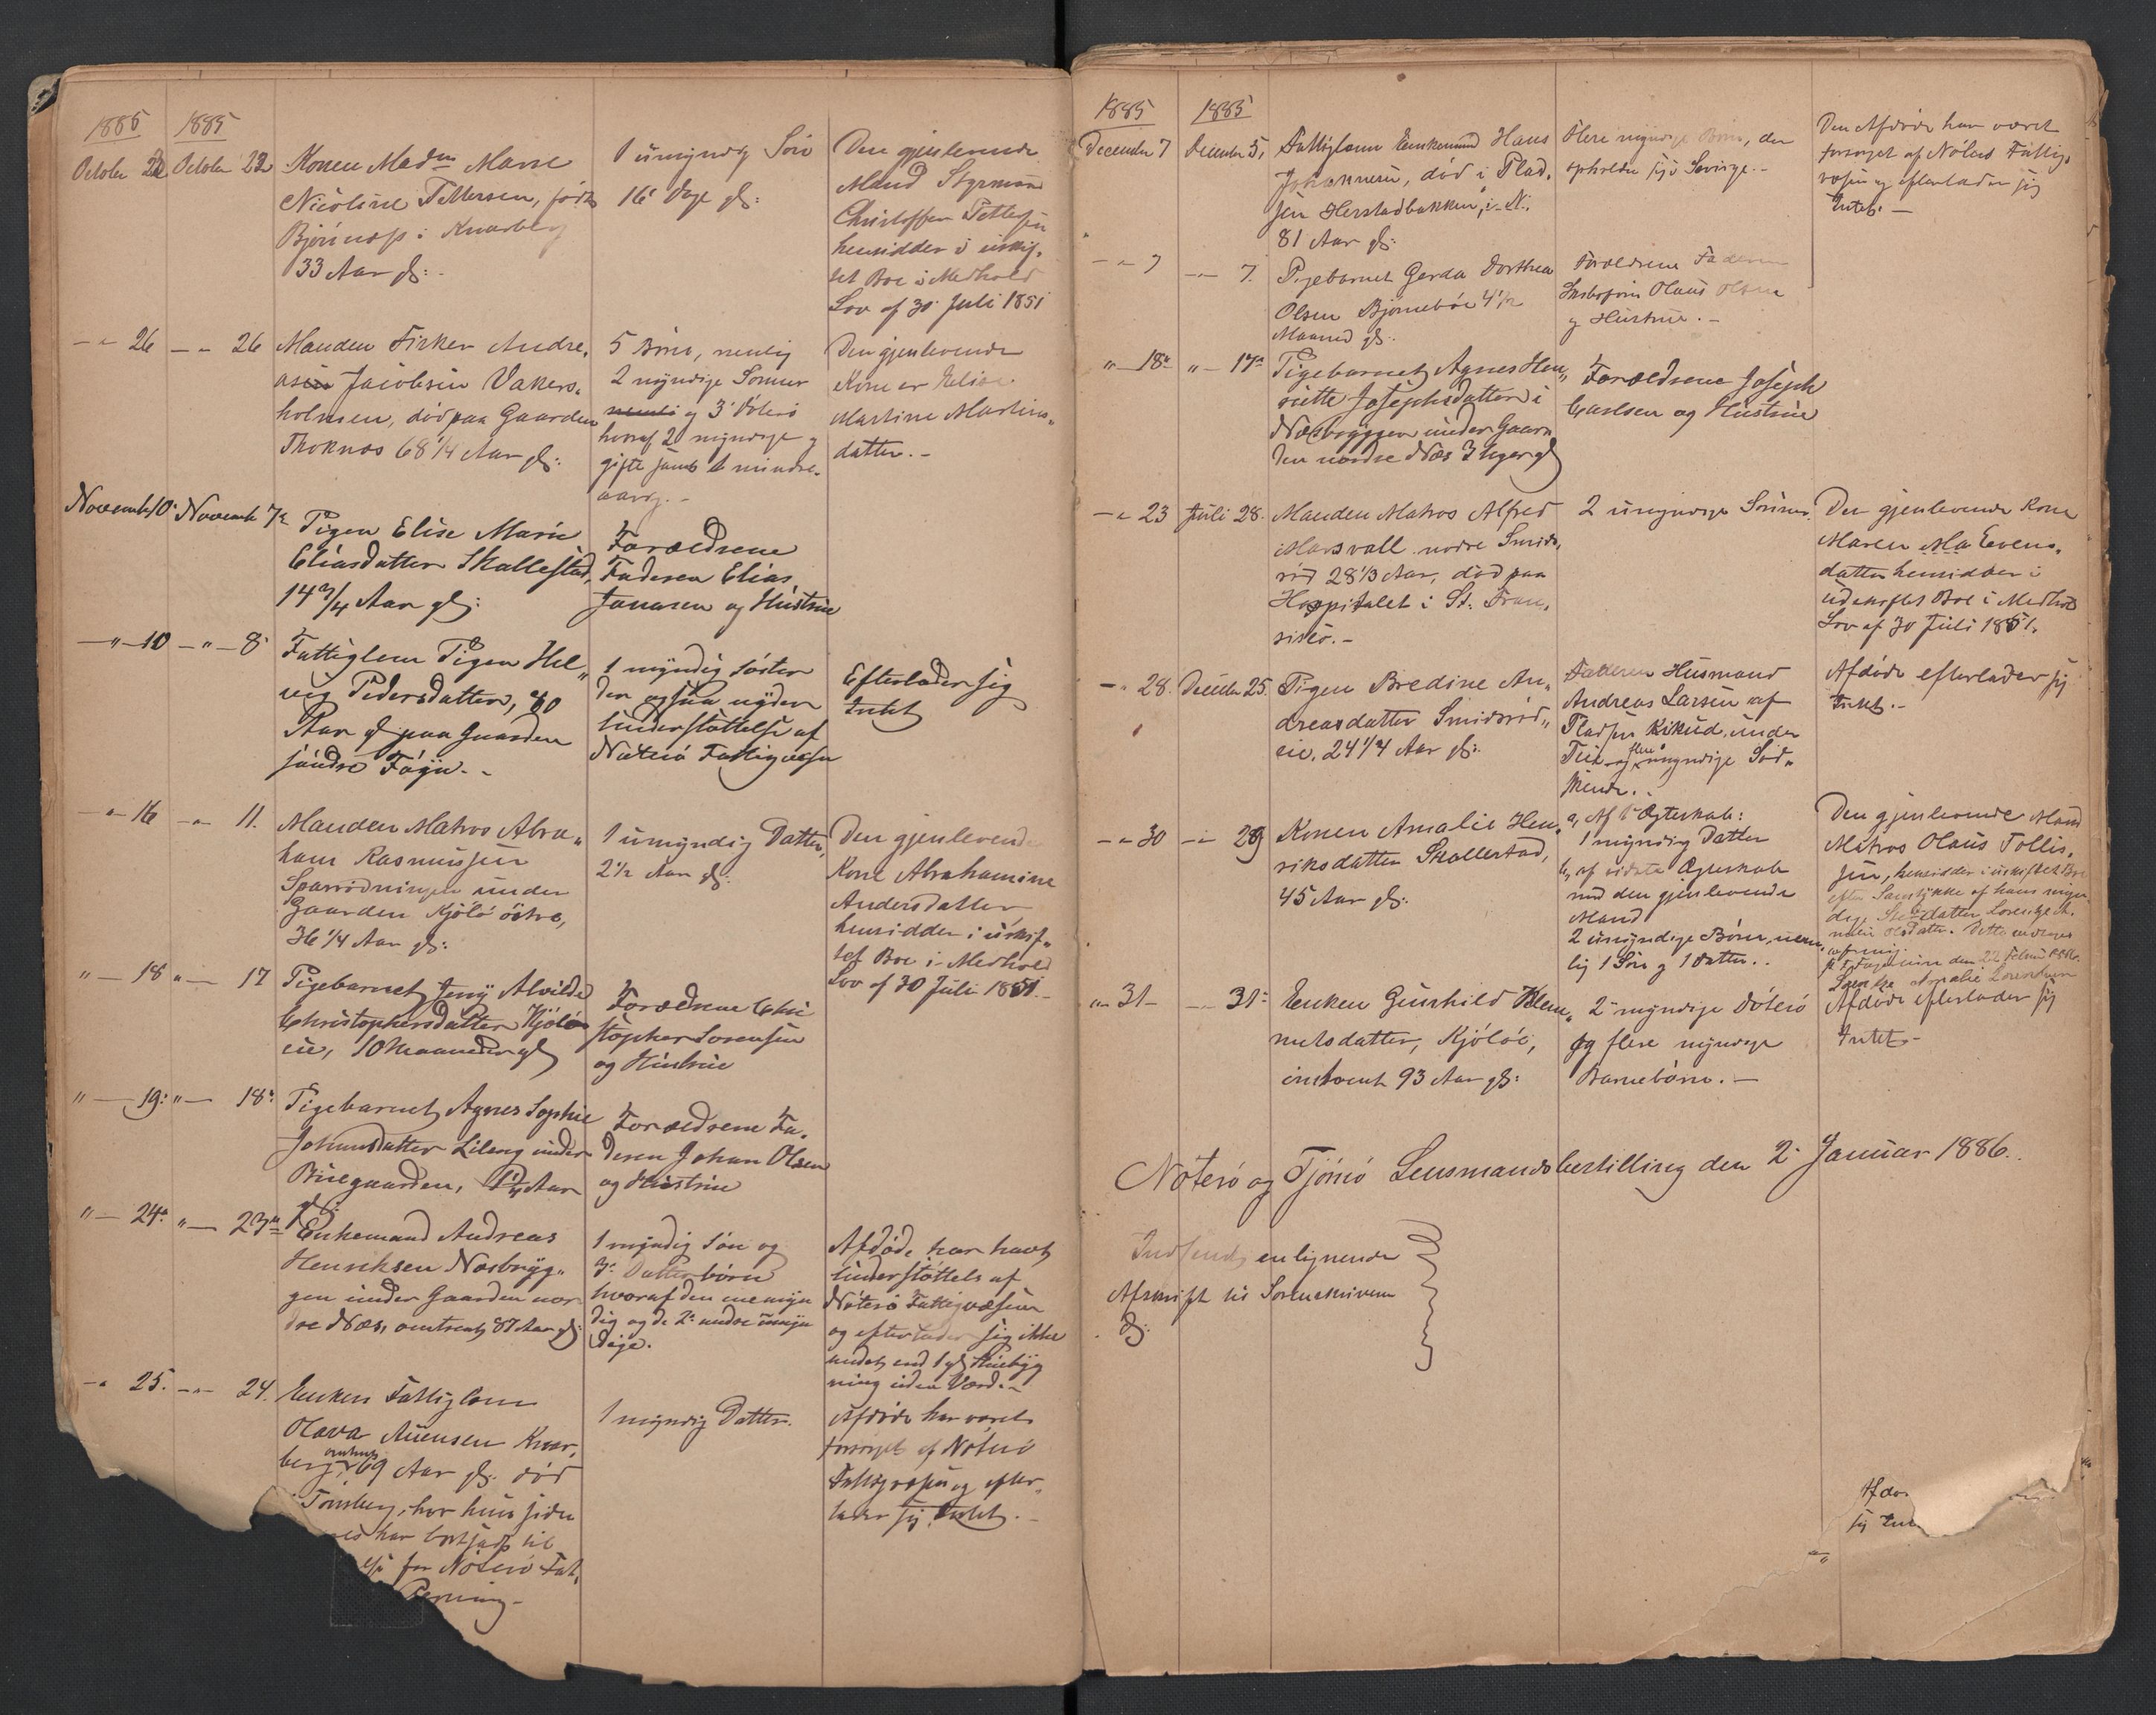 1885 1885
October 22 October 22
Konen Madm Marie
Nicoline Pettersen, født
Bjørnæs i Knarberg
33 Aar gl:
1 umyndig Søn
16 Dage gl:
Den gjenlevende
Mand Styrmand
Christoffer Pettersen
hensidder i uskif-
tet Boe i Medhold
Lov af 30 Juli 1851
-"- 26 -"- 26
Manden Fisker Andre,
asen Jacobsen Vakers-
holmen, død paa Gaarden
Thoknæs 68 1/4 Aar gl:
5 Børn, nemlig
2 myndige Sønner
nemli og 3 Døtre
hvoraf 2 myndige og
gifte samt 1 mindre-
aarig.-
Den gjenlevende
Kone er Elise
Martine Martins-
datter.-
Novemb 10 Novemb 7de
Pigen Elise Marie
Eliasdatter Skallestad,
14 3/4 Aar gl:
Forældrene
Faderen Elias
Jonasen og Hustrue
-"- 10 -"- 8
Fattiglem Pigen Hel-
vig Pedersdatter, 70
Aar gl paa Gaarden
søndre Føyn.-
1 myndig Søster
der ogsaa nyder
Understøttelse af
Nøterø Fattigvæsen
Efterlader sig
Intet
-"- 16 -"- 11.
Manden Matros Abra-
ham Rasmussen
Sparrødningen under
Gaarden Kjølø østre,
36 1/4 Aar gl:
1 umyndig Datter,
2 1/2 Aar gl:
Den gjenlevende
Kone Abrahamine
Andersdatter
hensidder i uskif-
tet Boe i Medhold
Lov af 30 Juli 1851.-
"- 18 "- 17
Pigebarnet Jenny Alvilde
Christophersdatter Kjølø-
eie, 10 Maaneder gl
Forældrene Chri
stopher Sorensen
og Hustrue
"- 19: "- 18:
Pigebarnet Agnes Sophie
Johansdatter Lileng under
Bruegaarden, 1 1/4 Aar
gl:
Forældrene Fa-
deren Johan Olsen
og Hustrue
"- 24: "- 23de
Enkemand Andreas
Henriksen Næsbryg-
gen under Gaarden nor
dre Næs, omtrent 87 Aar gl:
1 myndig Søn og
3 Datterbørn
hvoraf den ene myn
dig og de 2 andre umyn
dige.
Afdøde har havt
Understøttels af
Nøterø Fattigvæsen
og efterlader sig ikke
andet end 1 gl Huusbyg
ning uden Værd.-
-"- 25. -"- 24.
Enken Fattiglem
Olava Auensen Knar-
berg, omtrent 69 Aar gl: død
i Tønsberg, hvor hun siden
har bortsadt til
for Nøterø Fat-
Regning-
1 myndig Datter.
Afdøde har været
forsørget af Nøterø
Fattigvæsen og efter-
lader sig Intet.-
1885 1885
December 7 December 5,
Fattiglem Enkemand Hans
Johannesen, død i Plad-
sen Herstadbakken, i N.
81 Aar gl:
Flere myndige Børn, der
opholder sig i Sverige.-
Den Afdøde har været
forsørget af Nøterø Fattig-
væsen og efterlader sig
Intet.-
-"- 7 -"- 7.
Pigebarnet Gerda Dorthea
Olsen Bjørnebøe 4 1/2
Maaned gl:
Forældrene Faderen
Skibstøm Olaus Olsen
og Hustrue.-
"- 18de "- 17de
Pigebarnet Agnes Hen-
riette Josephsdatter i
Næsbryggen under Gaar
den nordre Næs 3 Uger gl
Forældrene Joseph
Carlsen og Hustrue
-"- 23 Juli 28.
Manden Matros Alfred
Marsvall nordre Smids-
rød 28 1/3 Aar, død paa
Hospitalet i St. Fran-
sisco.-
2 umyndige Sønner.
Den gjenlevende Kone
Maren Ma Evens-
datter hensidder i
udskiftet Boe i Medhold
Lov af 30 Juli 1851.
-"- 28. December 25.
Pigen Bredine An-
dreasdatter Smidsrød-
eie, 24 1/4 Aar gl:
Faderen Husmand
Andreas Larsen af
Pladsen Kikud, under
Teie og flere myndige Sød-
skende..
Afdøde efterlader sig
Intet.-
-"- 30 -"- 29
Konen Amalie Hen-
riksdatter Skallestad,
45 Aar gl:
a, Af 1ste Ægteskab:
1 myndig Datter
b, af sidste Ægteskab
med den gjenlevende
Mand
2 umyndige Børn, nem-
lig 1 Søn og 1 Datter..
Den gjenlevende Mand
Matros Olaus Tollif-
sen, hensidder i uskiftet Bo
efter Samtykke af hans myn-
dige Steddatter Lorentze A-
malie Olsdatter. Dette medgives
af mig.
den 22 Februar 1886.
Lorentze Amalie Lorentzen
-"- 31- -"- 31:
Enken Gunhild Klem-
metsdatter, Kjøløe,
omtrent 93 Aar gl:
2 myndige Døtre
og flere myndige
Barnebørn.-
Afdøde efterlader sig
Intet-
Nøterø og Tjømø Lensmandsbestilling den 2 Januar 1886..
Indsendt enlignende
Afskrift til Sorenskriveren
D:
Afdø
sig Int